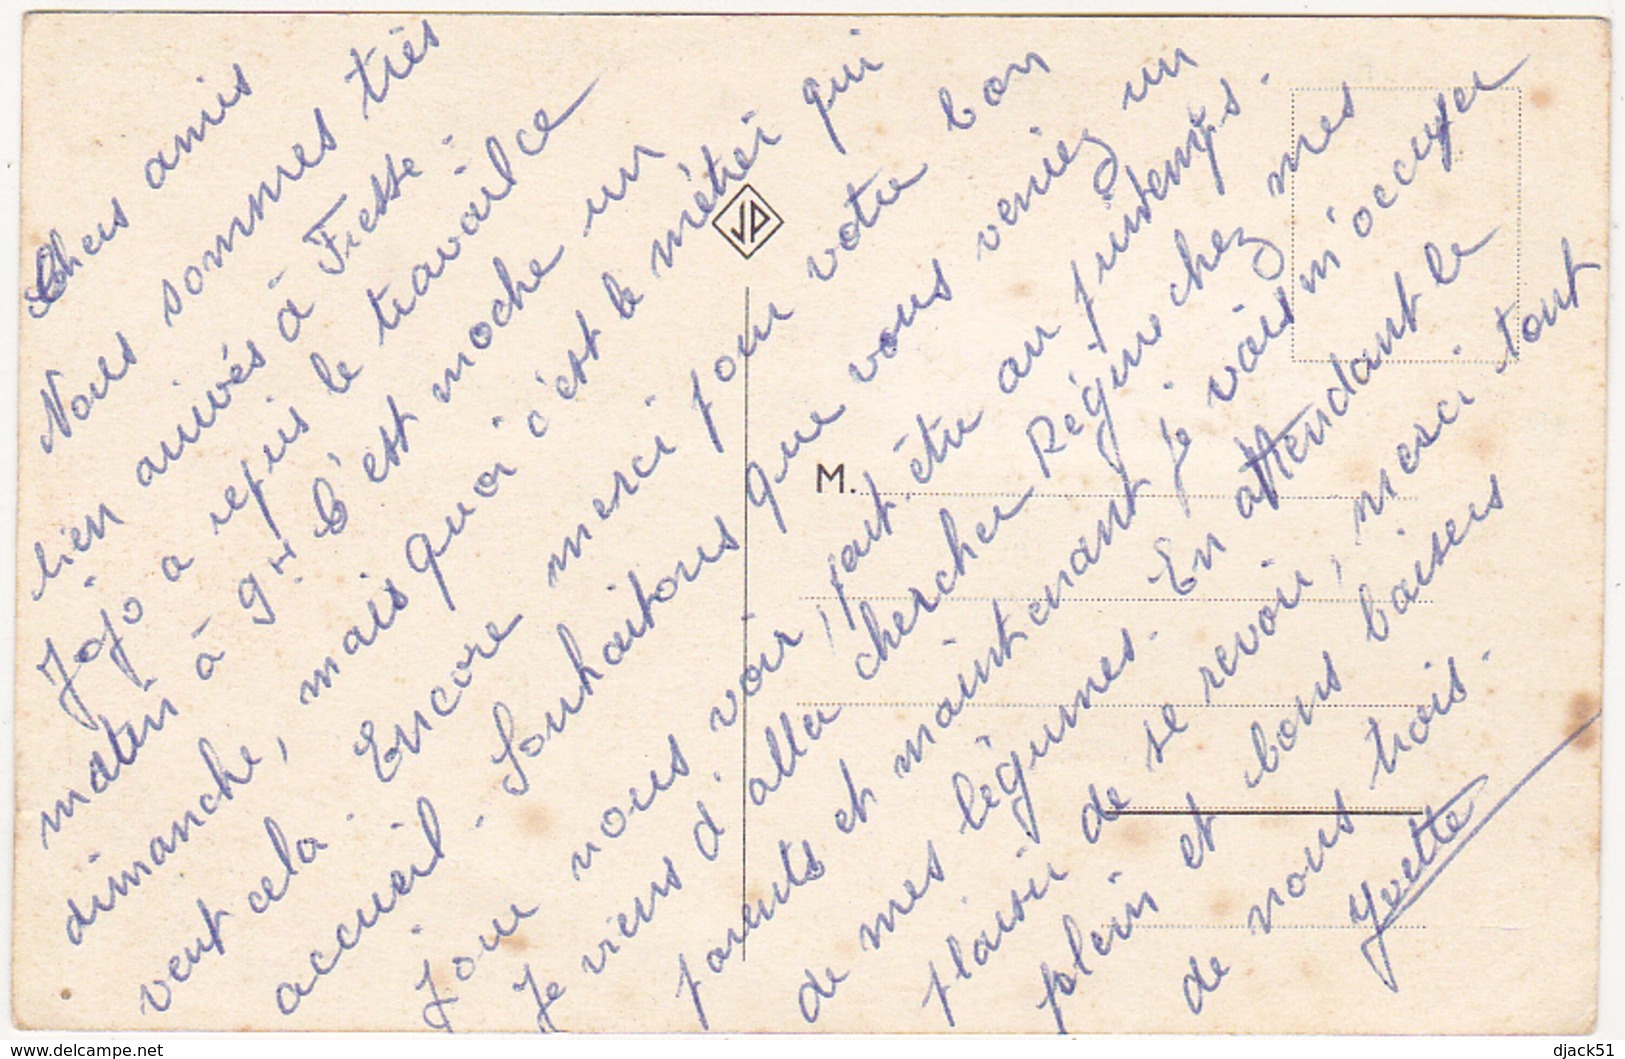 Chers amis
Nous sommes très
bien arrivés à Fresse.
Jojo a repris le travail ce
matin à 9H C'est moche un
dimanche, mais quoi c'est le métier qui
veut cela. Encore merci pour votre bon
accueil. Souhaitons que vous veniez un
jour nous voir, peut être au printemps.
Je viens d'aller chercher Régine chez mes
parents et maintenant je vais m'occuper
de mes légumes. En attendant le
plaisir de se revoir, merci tout
plein et bons baisers
de nous trois.
Yvette
VA
M.
www.delcampe.net
djack51